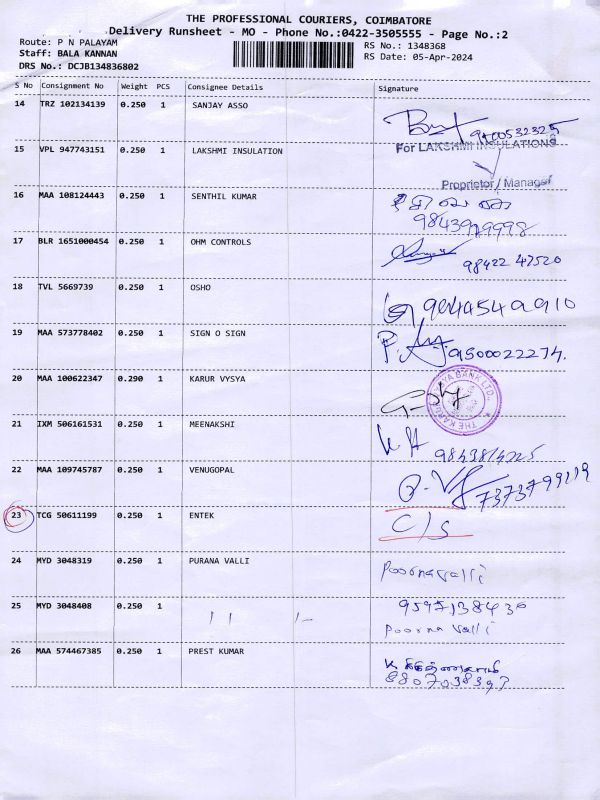 THE PROFESSIONAL COURIERS, COIMBATORE
Delivery Runsheet - MO - Phone No.:0422-3505555 - Page No.:2
Route: P N PALAYAM
Staff: BALA KANNAN
DRS No.: DCJB134836802
RS No.: 1348368
RS Date: 05-Apr-2024
S No Consignment No Weight PCS Consignee Details Signature
14 TRZ 102134139 0.250 1 SANJAY ASSO
15 VPL 947743151 0.250 1 LAKSHMI INSULATION
For LAKSHMI INSULATIONS
Proprietor / Manager
16 MAA 108124443 0.250 1 SENTHIL KUMAR
17 BLR 1651000454 0.250 1 OHM CONTROLS
98422 47520
18 TVL 5669739 0.250 1 OSHO
19 MAA 573778402 0.250 1 SIGN O SIGN
9500022274.
20 MAA 100622347 0.290 1 KARUR VYSYA
21 IXM 506161531 0.250 1 MEENAKSHI
22 MAA 109745787 0.250 1 VENUGOPAL
23 TCG 50611199 0.250 1 ENTEK C/S
24 MYD 3048319 0.250 1 PURANA VALLI Poornavalli
25 MYD 3048408 0.250 1 11 1-
9597138430
Poorna valli
26 MAA 574467385 0.250 1 PREST KUMAR
8807038397